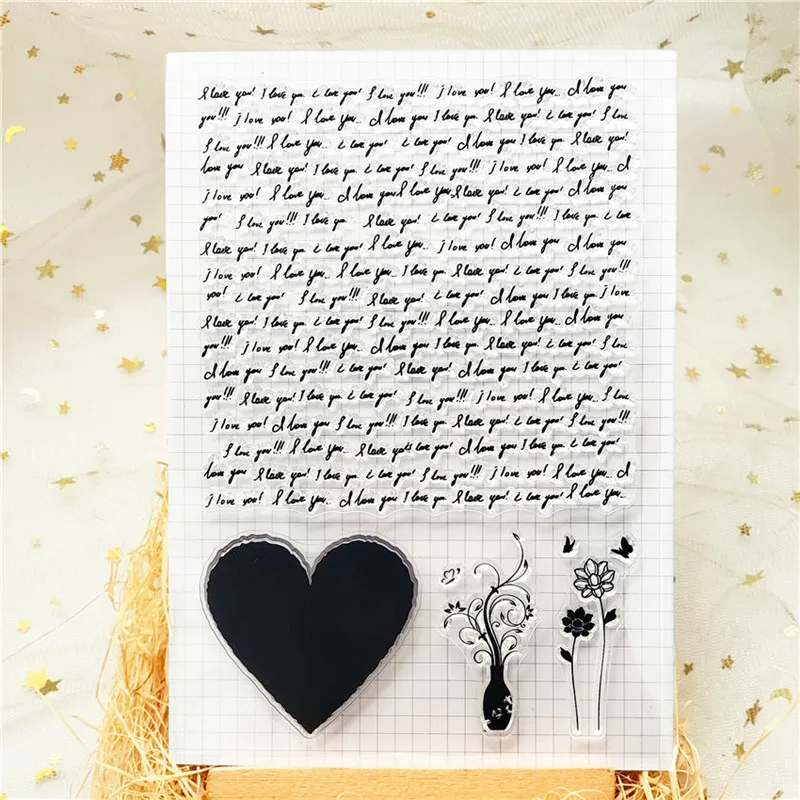 I love you! I love you I love you! I love you!!! I love you! I love you.. I love you
you!!! I love you! I love you.. I love you I love you I love you! I love you! I love
I love you!!! I love you.. I love you! I love you! I love you I love you I love you!
love you I love you! I love you I love you! I love you!!! I love you! I love you.. I
I love you! I love you.. I love you I love you.. I love you! I love you! I love you
you! I love you!!! I love you I love you! I love you! I love you!!! I love you I love
I love you! I love you I love you! I love you.. I love you! I love you I love you
I love you! I love you.. I love you.. I love you I love you! I love you! I love you!!!
you! I love you! I love you!!! I love you! I love you! I love you I love you I love
I love you! I love you I love you! I love you!!! I love you.. I love you.. I love you
you!!! I love you! I love you.. I love you I love you I love you! I love you! I love
I love you I love you!!! I love you! I love you! I love you I love you I love you!
you!!! I love you! I love you I love you! I love you!!! I love you! I love you.. I love
I love you! I love you I love you!!! I love you I love you! I love you! I love you!!!
I love you!!! I love you.. I love you! I love you! I love you I love you I love you!
love you I love you! I love you I love you! I love you!!! I love you! I love you.. I
I love you! I love you.. I love you I love you I love you! I love you! I love you..